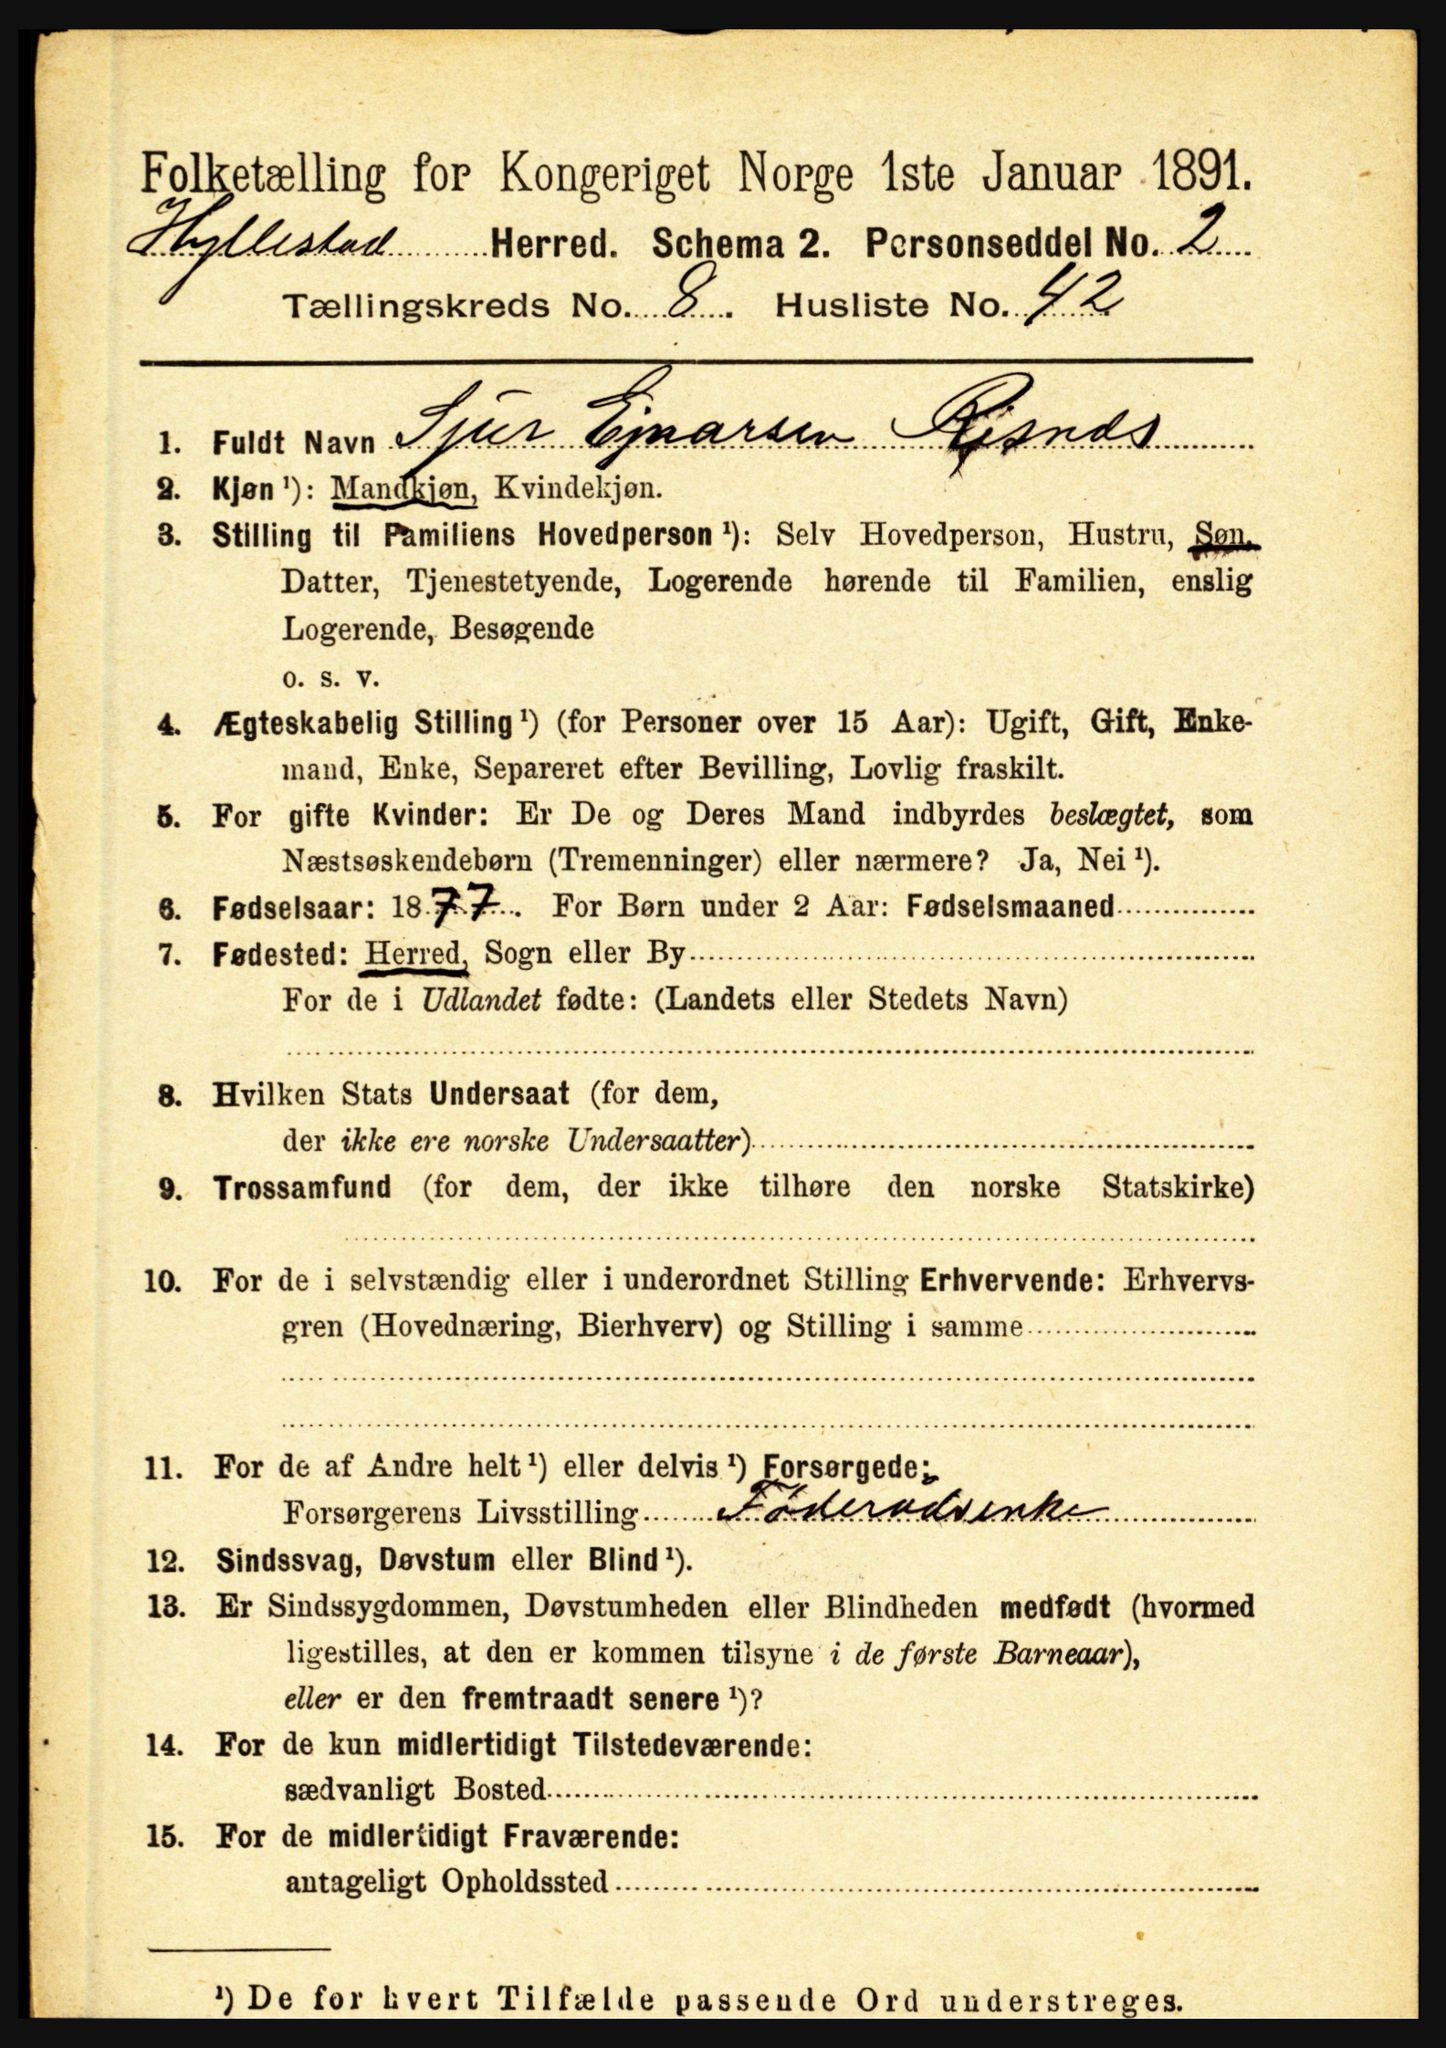 Folketælling for Kongeriget Norge 1ste Januar 1891.
Hyllestad Herred. Schema 2. Personseddel No. 2
Tællingskreds No. 8. Husliste No. 42
1. Fuldt Navn Sjur Ejnarsen Risnes
2. Kjøn ¹): Mandkjøn, Kvindekjøn.
3. Stilling til Familiens Hovedperson ¹): Selv Hovedperson, Hustru, Søn,
Datter, Tjenestetyende, Logerende hørende til Familien, enslig
Logerende, Besøgende
o. s. v.
4. Ægteskabelig Stilling ¹) (for Personer over 15 Aar): Ugift, Gift, Enke-
mand, Enke, Separeret efter Bevilling, Lovlig fraskilt.
5. For gifte Kvinder: Er De og Deres Mand indbyrdes beslægtet, som
Næstsøskendebørn (Tremenninger) eller nærmere? Ja, Nei ¹).
6. Fødselsaar: 1877. For Børn under 2 Aar: Fødselsmaaned
7. Fødested: Herred, Sogn eller By
For de i Udlandet fødte: (Landets eller Stedets Navn)
8. Hvilken Stats Undersaat (for dem,
der ikke ere norske Undersaatter)
9. Trossamfund (for dem, der ikke tilhøre den norske Statskirke)
10. For de i selvstændig eller i underordnet Stilling Erhvervende: Erhvervs-
gren (Hovednæring, Bierhverv) og Stilling i samme
11. For de af Andre helt ¹) eller delvis ¹) Forsørgede:
Forsørgerens Livsstilling Føderadsenke
12. Sindssvag, Døvstum eller Blind ¹).
13. Er Sindssygdommen, Døvstumheden eller Blindheden medfødt (hvormed
ligestilles, at den er kommen tilsyne i de første Barneaar),
eller er den fremtraadt senere ¹)?
14. For de kun midlertidigt Tilstedeværende:
sædvanligt Bosted
15. For de midlertidigt Fraværende:
antageligt Opholdssted
¹) De for hvert Tilfælde passende Ord understreges.